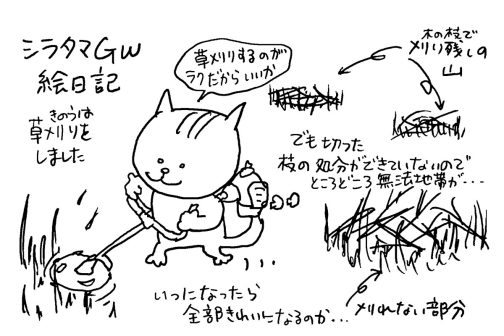 シラタマGW
絵日記
きのうは
草刈りを
しました
草刈りするのが
ラクだからいいか
木の枝で
刈り残しの
山
でも切った
枝の処分ができていないので
ところどころ無法地帯が・・・
いつになったら
全部きれいになるのか・・・
刈れない部分